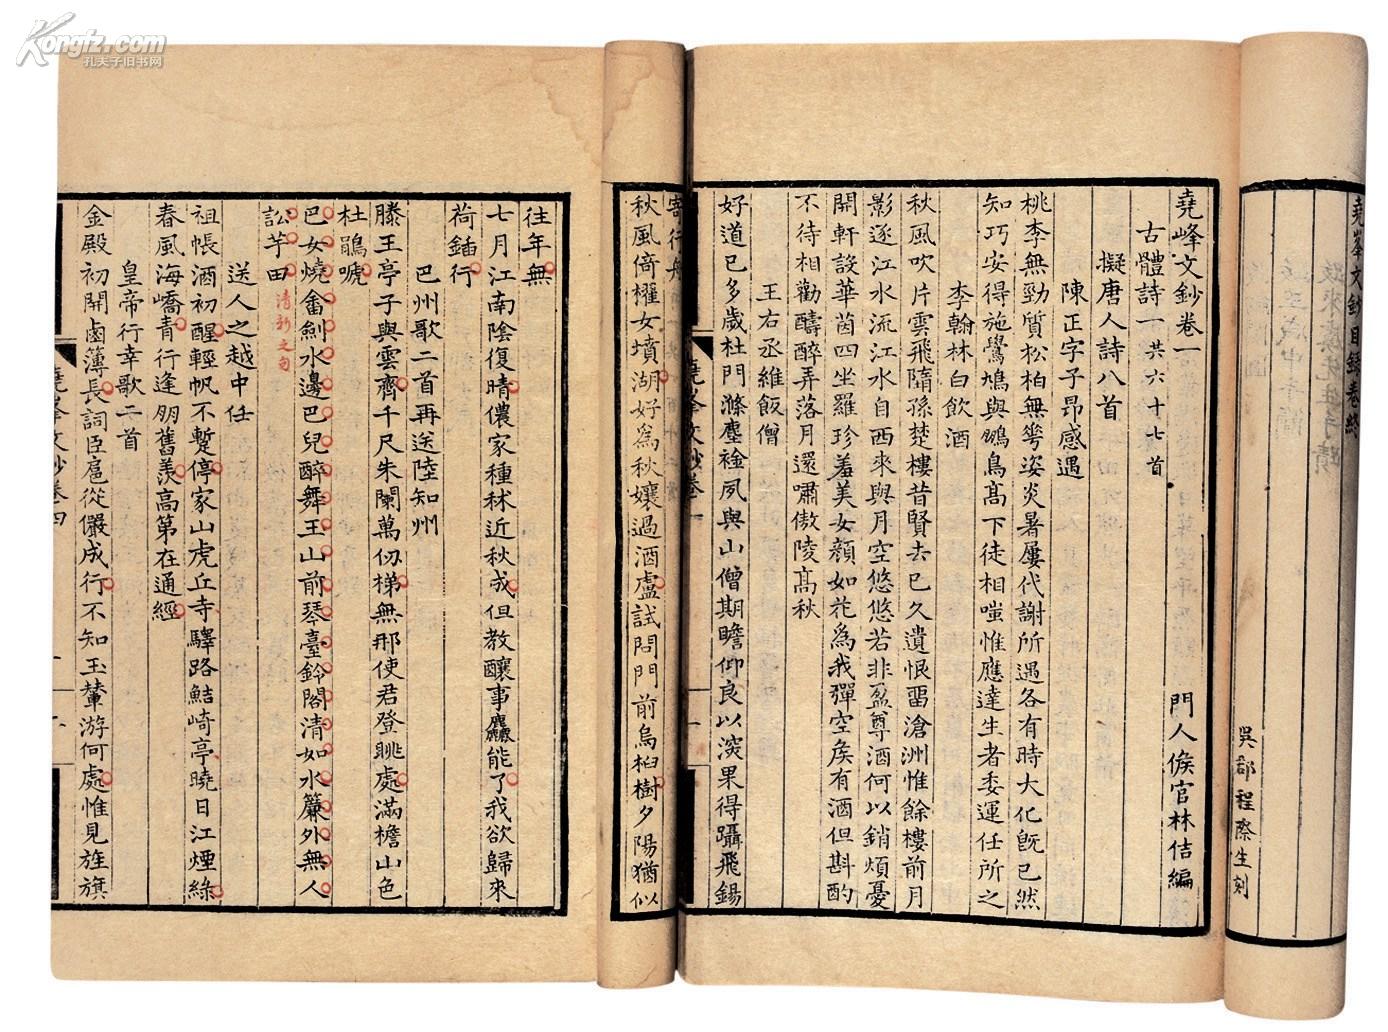 Kongfz.com
孔夫子旧书网
堯峯文鈔目録卷終
吳郡程際生刻
堯峰文鈔卷一
門人侯官林佶編
古體詩一共六十七首
擬唐人詩八首
陳正字子昂感遇
桃李無勁質松柏無𠌶姿炎暑屢代謝所遇各有時大化旣已然
知巧安得施鷽鳩與鵬鳥高下徒相嗤惟應達生者委運任所之
李翰林白飲酒
秋風吹片雲飛墮孫楚樓昔賢去已久遺恨畱滄洲惟餘樓前月
影逐江水流江水自西來與月空悠悠若非盈尊酒何以銷煩憂
開軒設華茵四坐羅珍羞美女顏如花爲我彈空矦有酒但斟酌
不待相勸醻醉弄落月還嘯傲陵高秋
王右丞維飯僧
好道已多歲杜門滌塵襟夙與山僧期瞻仰良以深果得躡飛錫
堯峯文鈔卷一
寄行舟
秋風倚櫂女墳湖好爲秋孃過酒盧試問門前烏桕樹夕陽猶似
往年無
七月江南陰復晴儂家種秫近秋成但教釀事麤能了我欲歸來
荷鍤行
巴州歌二首再送陸知州
滕王亭子與雲齊千尺朱闌萬仞梯無那使君登眺處滿檐山色
杜鵑嗁
巴女燒畬劍水邊巴兒醉舞玉山前琴臺鈴閣清如水簾外無人
訟芋田
清新之句
送人之越中任
祖帳酒初醒輕帆不蹔停家山虎丘寺驛路鮚崎亭曉日江煙綠
春風海嶠青行逢朋舊羨高第在通經
皇帝行幸歌二首
金殿初開鹵簿長詞臣扈從儼成行不知玉輦游何處惟見旌旗
堯峯文鈔卷四